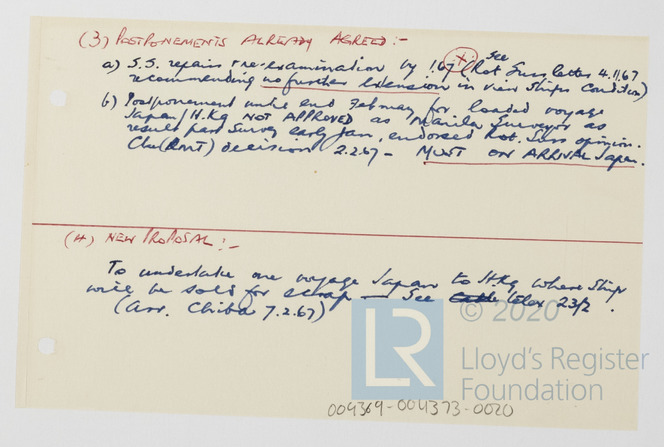 (3) POSTPONEMENTS ALREADY AGREED:-
a) S.S. repairs & re-examination by 1.67 (see Rot. Suss letter 4.11.67
recommending no further extension in view Ships Condition)
b) Postponement until end February for loaded voyage
Japan/H.Kg NOT APPROVED as Manila Surveyor as
result part Survey early Jan, endorsed Rot. Suss opinion.
decision 2.2.67 - MUST ON ARRIVAL Japan.
(4) NEW PROPOSAL:-
To undertake one voyage Japan to H.Kg where Ship
will be sold for scrap - See telex 23/2.
(Arr. Chiba 7.2.67)
© 2020
LR
Lloyd's Register
Foundation
004369-004373-0020